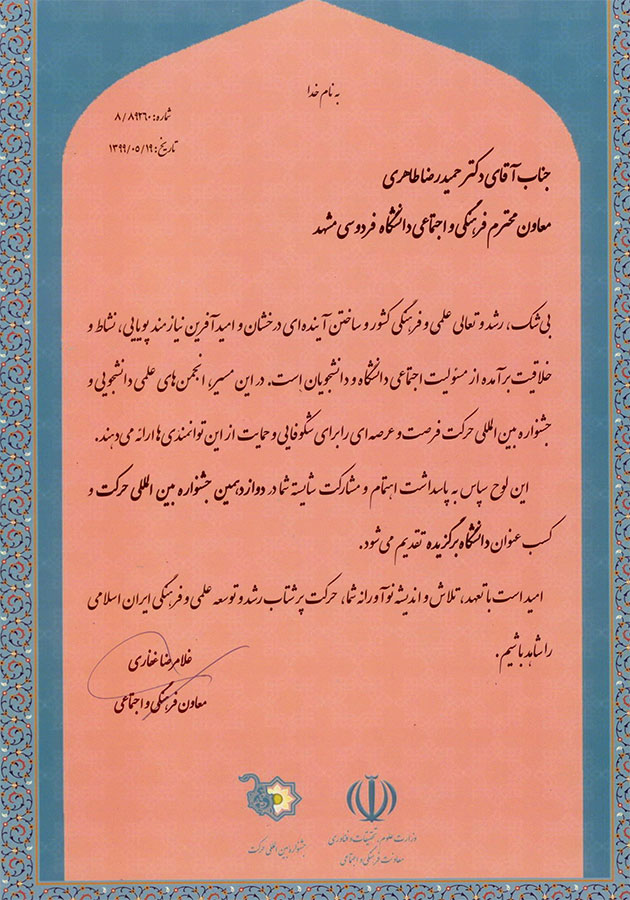 به نام خدا
شماره: ۸/۸۹۲۶۰
تاریخ: ۱۳۹۹/۰۵/۱۹
جناب آقای دکتر حمیدرضا طاهری
معاون محترم فرهنگی و اجتماعی دانشگاه فردوسی مشهد
بی‌شک، رشد و تعالی علمی و فرهنگی کشور و ساختن آینده‌ای درخشان و امیدآفرین نیازمند پویایی، نشاط و
خلاقیت برآمده از مسئولیت اجتماعی دانشگاه و دانشجویان است. در این مسیر، انجمن‌های علمی دانشجویی و
جشنواره بین‌المللی حرکت فرصت و عرصه‌ای را برای شکوفایی و حمایت از این توانمندی‌ها ارائه می‌دهند.
این لوح سپاس به پاسداشت اهتمام و مشارکت شایسته شما در دوازدهمین جشنواره بین المللی حرکت و
کسب عنوان دانشگاه برگزیده تقدیم می‌شود.
امید است با تعهد، تلاش و اندیشه نوآورانه شما، حرکت پرشتاب رشد و توسعه علمی و فرهنگی ایران اسلامی
را شاهد باشیم.
غلامرضا غفاری
معاون فرهنگی و اجتماعی
وزارت علوم، تحقیقات و فناوری
معاونت فرهنگی و اجتماعی
جشنواره بین المللی حرکت